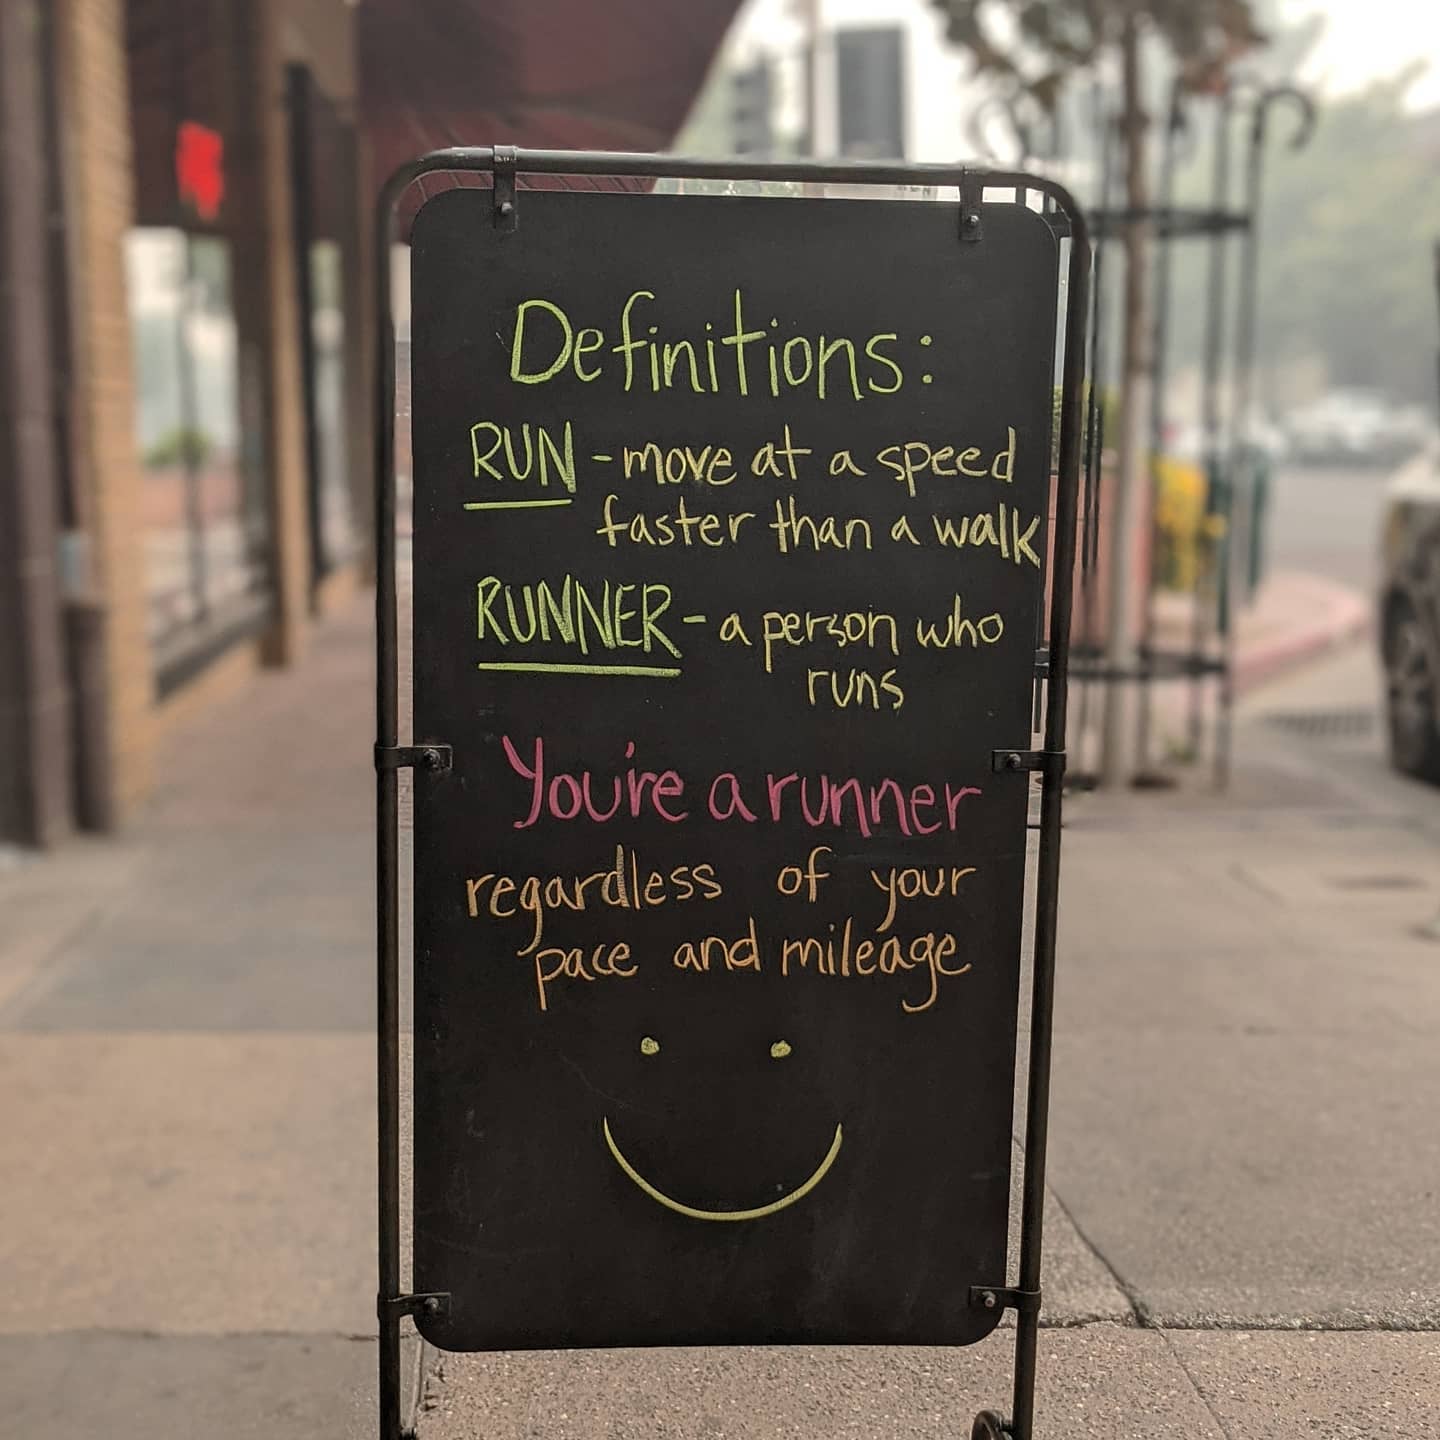 Definitions:
RUN - move at a speed
faster than a walk
RUNNER - a person who
runs
You're a runner
regardless of your
pace and mileage